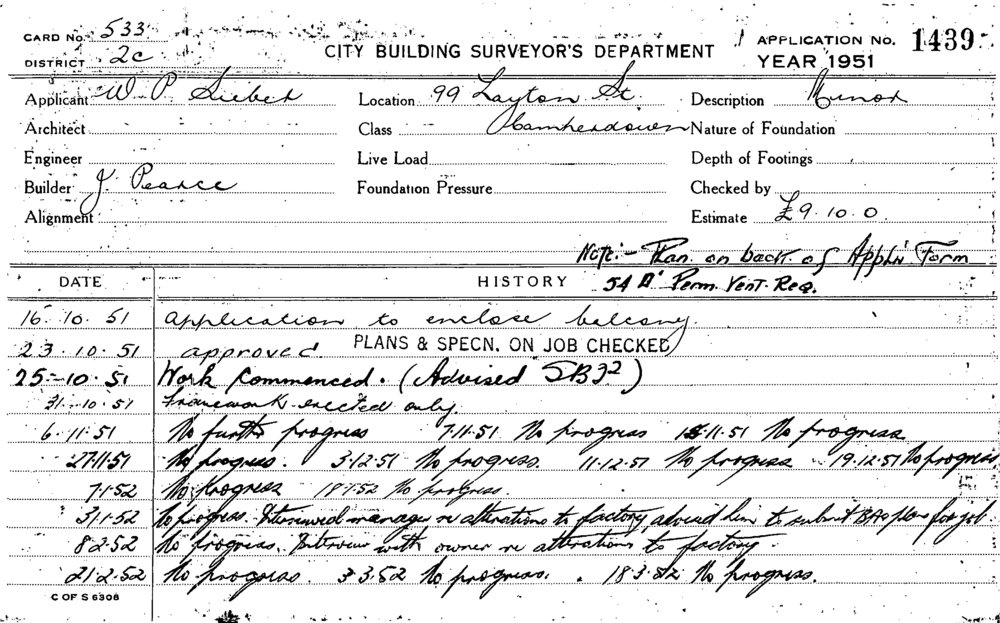 CARD No. 533
DISTRICT 2c
CITY BUILDING SURVEYOR'S DEPARTMENT
APPLICATION No. 1439
YEAR 1951
Applicant W. P. Sieber Location 99 Layton St. Description Minor
Architect Class Camperdown Nature of Foundation
Engineer Live Load Depth of Footings
Builder J. Pearce Foundation Pressure Checked by
Alignment Estimate £9.10.0
Note:- Plan on back of Appl'n Form
DATE HISTORY 54 □" Perm. Vent. Req.
16.10.51 Application to enclose balcony.
23.10.51 approved. PLANS & SPECN. ON JOB CHECKED
25-10.51 Work commenced. (Advised SB32)
31.10.51 Framework erected only.
6.11.51 No further progress 7.11.51 No progress 15.11.51 No progress
27.11.51 No progress. 3.12.51 No progress. 11.12.51 No progress 19.12.51 No progress
7.1.52 No progress 18.1.52 No progress.
31.1.52 No progress. Interviewed manager re alterations to factory, advised him to submit plans for job.
8.2.52 No progress. Interview with owner re alterations to factory
21.2.52 No progress. 3.3.52 No progress. 18.3.52 No progress.
C OF S 6308